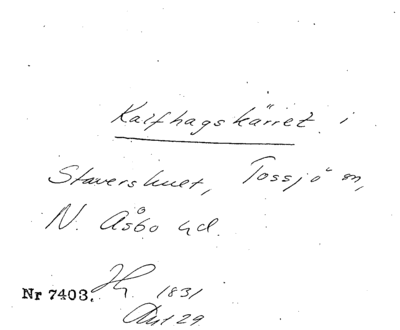 Kalfhagskärret i
Stavershult, Tossjö sn,
N. Åsbo hd.
Nr 7403. 1831
Akt 29